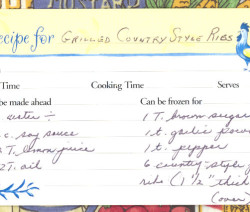 ecipe for GRILLED COUNTRY STYLE RIBS
Time Cooking Time Serves
be made ahead Can be frozen for
water ÷ 1 T. brown sugar
c. soy sauce 1 t. garlic powd
T. lemon juice 1 t. pepper
2T. oil 6 country style
ribs (1 1/2" thick
(over